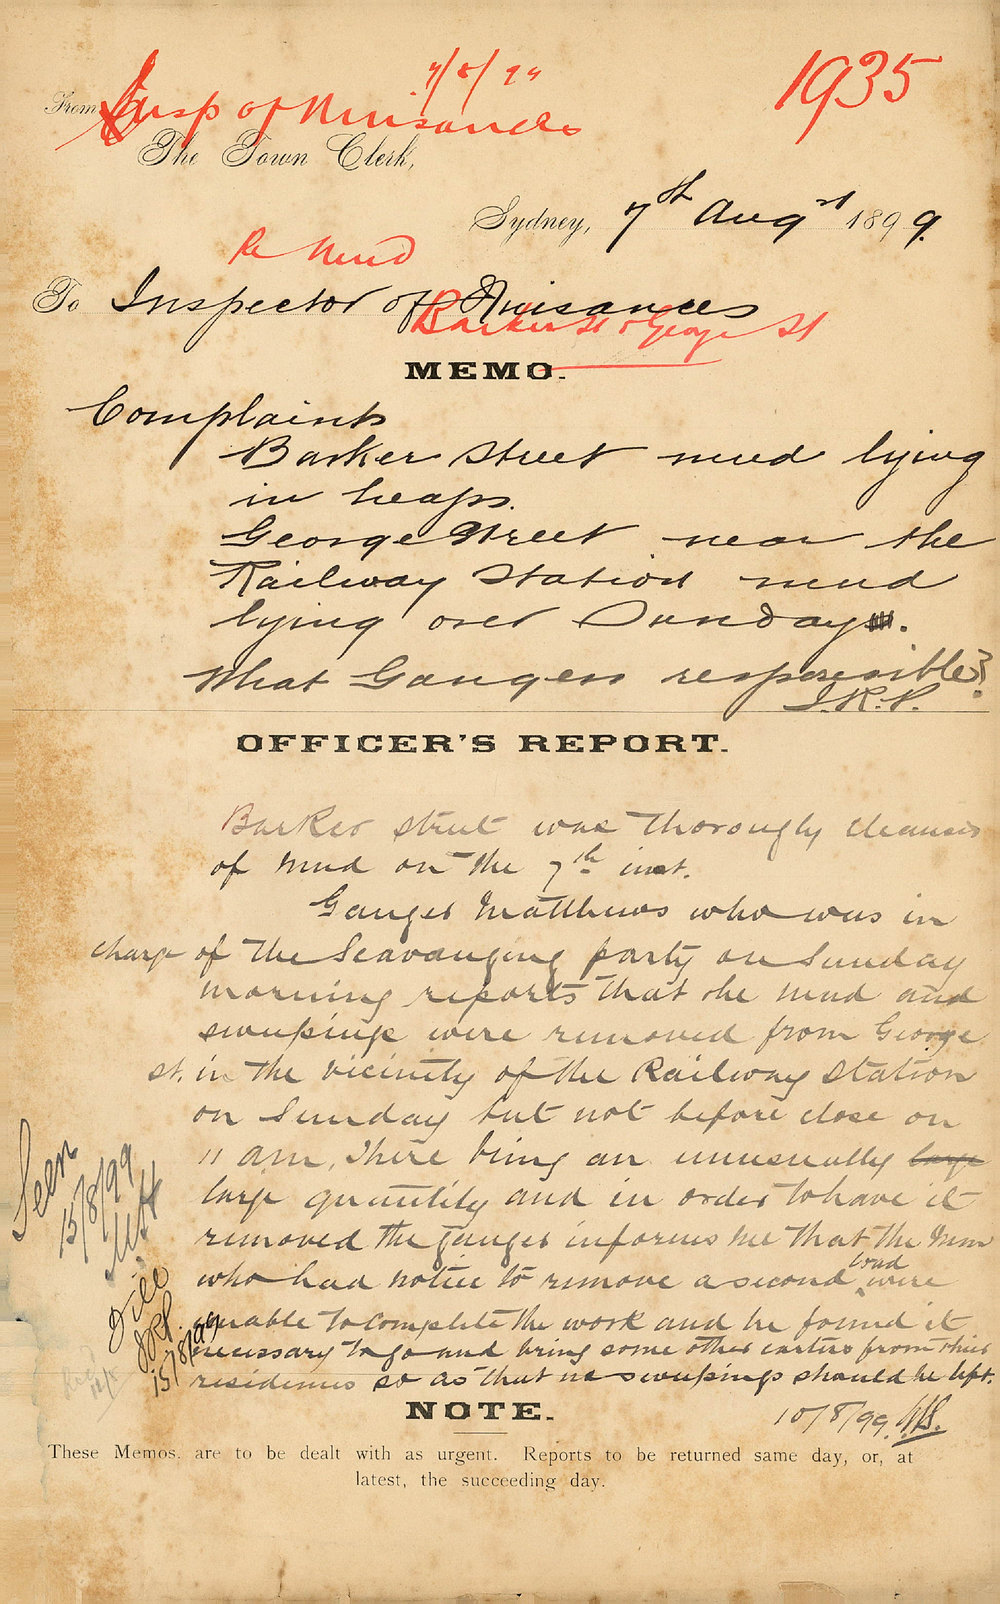 7/8/99
1935
From Insp of Nuisances
The Town Clerk,
Sydney, 7th Augst 1899.
Re Mud
To Inspector of Nuisances
Barker St & George St
MEMO.
Complaints
Barker Street mud lying
in heaps.
George Street near the
Railway Station mud
lying over Sunday.
What Gangers responsible?
OFFICER'S REPORT.
Barker street was thoroughly cleansed
of mud on the 7th inst.
Ganger Matthews who was in
charge of the Scavanging party on Sunday
morning reports that the mud and
sweepings were removed from George
st. in the vicinity of the Railway Station
on Sunday but not before close on
11 am, There being an unusually large
large quantity and in order to have it
removed the Ganger informs me that the men
who had notice to remove a second load were
unable to complete the work and he found it
necessary to go and bring some other carters from their
residences so as that no sweepings should be left.
10/8/99
Seen
15/8/99
File
J.R.P.
15/8/99
NOTE.
These Memos. are to be dealt with as urgent. Reports to be returned same day, or, at
latest, the succeeding day.